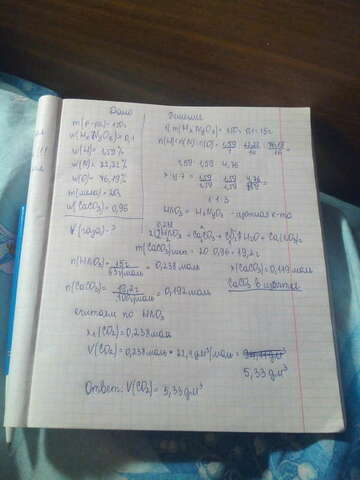 Дано
m(р-ра) = 150г
w(HxNyOz) = 0,1
w(H) = 1,59%
w(N) = 22,22%
w(O) = 76,19%
m(мела) = 20г
w(CaCO3) = 0,96
V(газа) - ?
Решение
1) m(HxNyOz) = 150г · 0,1 = 15г
n(H) : n(N) : n(O) = 1,59/1 : 22,22/14 : 76,19/16
1,59 : 1,59 : 4,76
x : y : z = 1,59/1,59 : 1,59/1,59 : 4,76/1,59
1 : 1 : 3
HNO3 = HxNyOz - азотная к-та
0,238
2HNO3 + CaCO3 = CO2↑ + H2O + Ca(NO3)2
m(CaCO3) = 20 · 0,96 = 19,2г
n(HNO3) = 15г / 63г/моль = 0,238 моль
x(CaCO3) = 0,119 моль
n(CaCO3) = 19,2г / 100г/моль = 0,192 моль
CaCO3 в избытке
считаем по HNO3
x(CO2) = 0,238 моль
V(CO2) = 0,238 моль * 22,4 дм³/моль =
5,33 дм³
Ответ: V(CO2) = 5,33 дм³